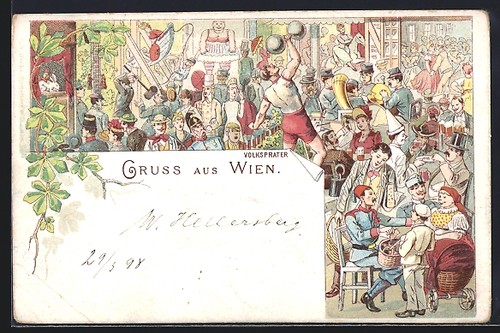 VOLKSPRATER
GRUSS AUS WIEN.
W. Hellersberg
29/5 98